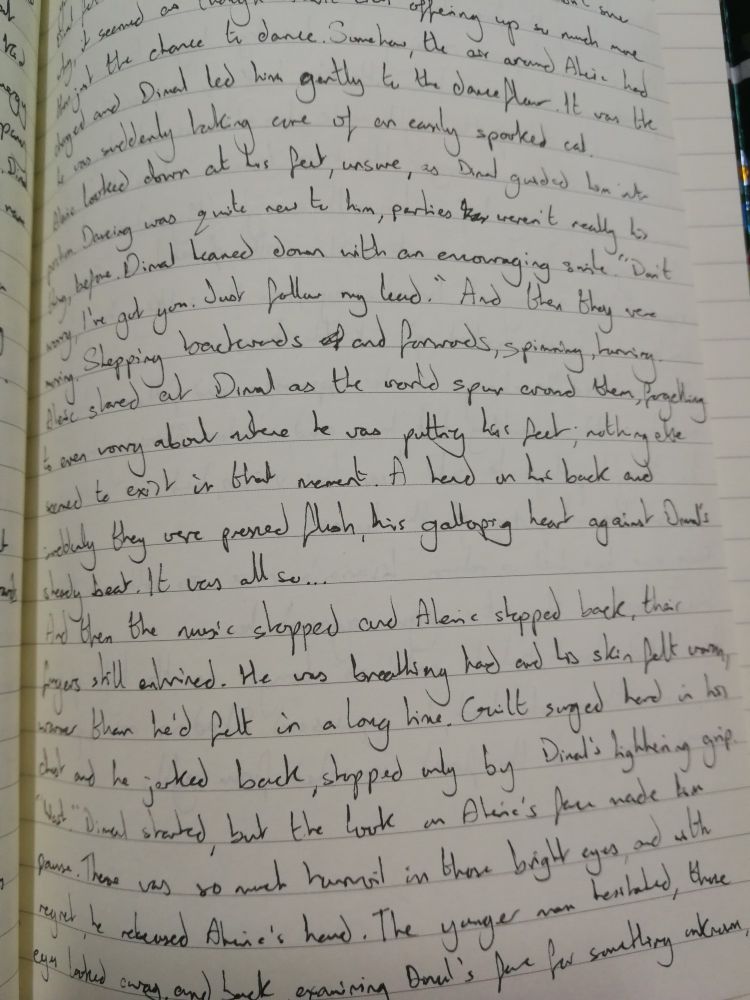 it seemed as though offering up so much more
than just the chance to dance. Somehow, the air around Aleric had
changed and Dimal led him gently to the dancefloor. It was like
he was suddenly taking care of an easily spooked cat.
Aleric looked down at his feet, unsure, as Dimal guided him into
position. Dancing was quite new to him, parties weren't really his
thing, before. Dimal leaned down with an encouraging smile "Don't
worry, I've got you. Just follow my lead." And then they were
moving. Stepping backwards and forwards, spinning, turning.
Aleric stared at Dimal as the world spun around them, forgetting
to even worry about where he was putting his feet; nothing else
seemed to exist in that moment. A hand on his back and
suddenly they were pressed flush, his galloping heart against Dimal's
steady beat. It was all so...
And then the music stopped and Aleric stepped back, their
fingers still entwined. He was breathing hard and his skin felt warm,
warmer than he'd felt in a long time. Guilt surged hard in his
chest and he jerked back, stopped only by Dimal's tightening grip.
"Wait." Dimal started, but the look on Aleric's face made him
pause. There was so much turmoil in those bright eyes, and with
regret, he released Aleric's hand. The younger man hesitated, those
eyes looked away and back, examining Dimal's face for something unknown,